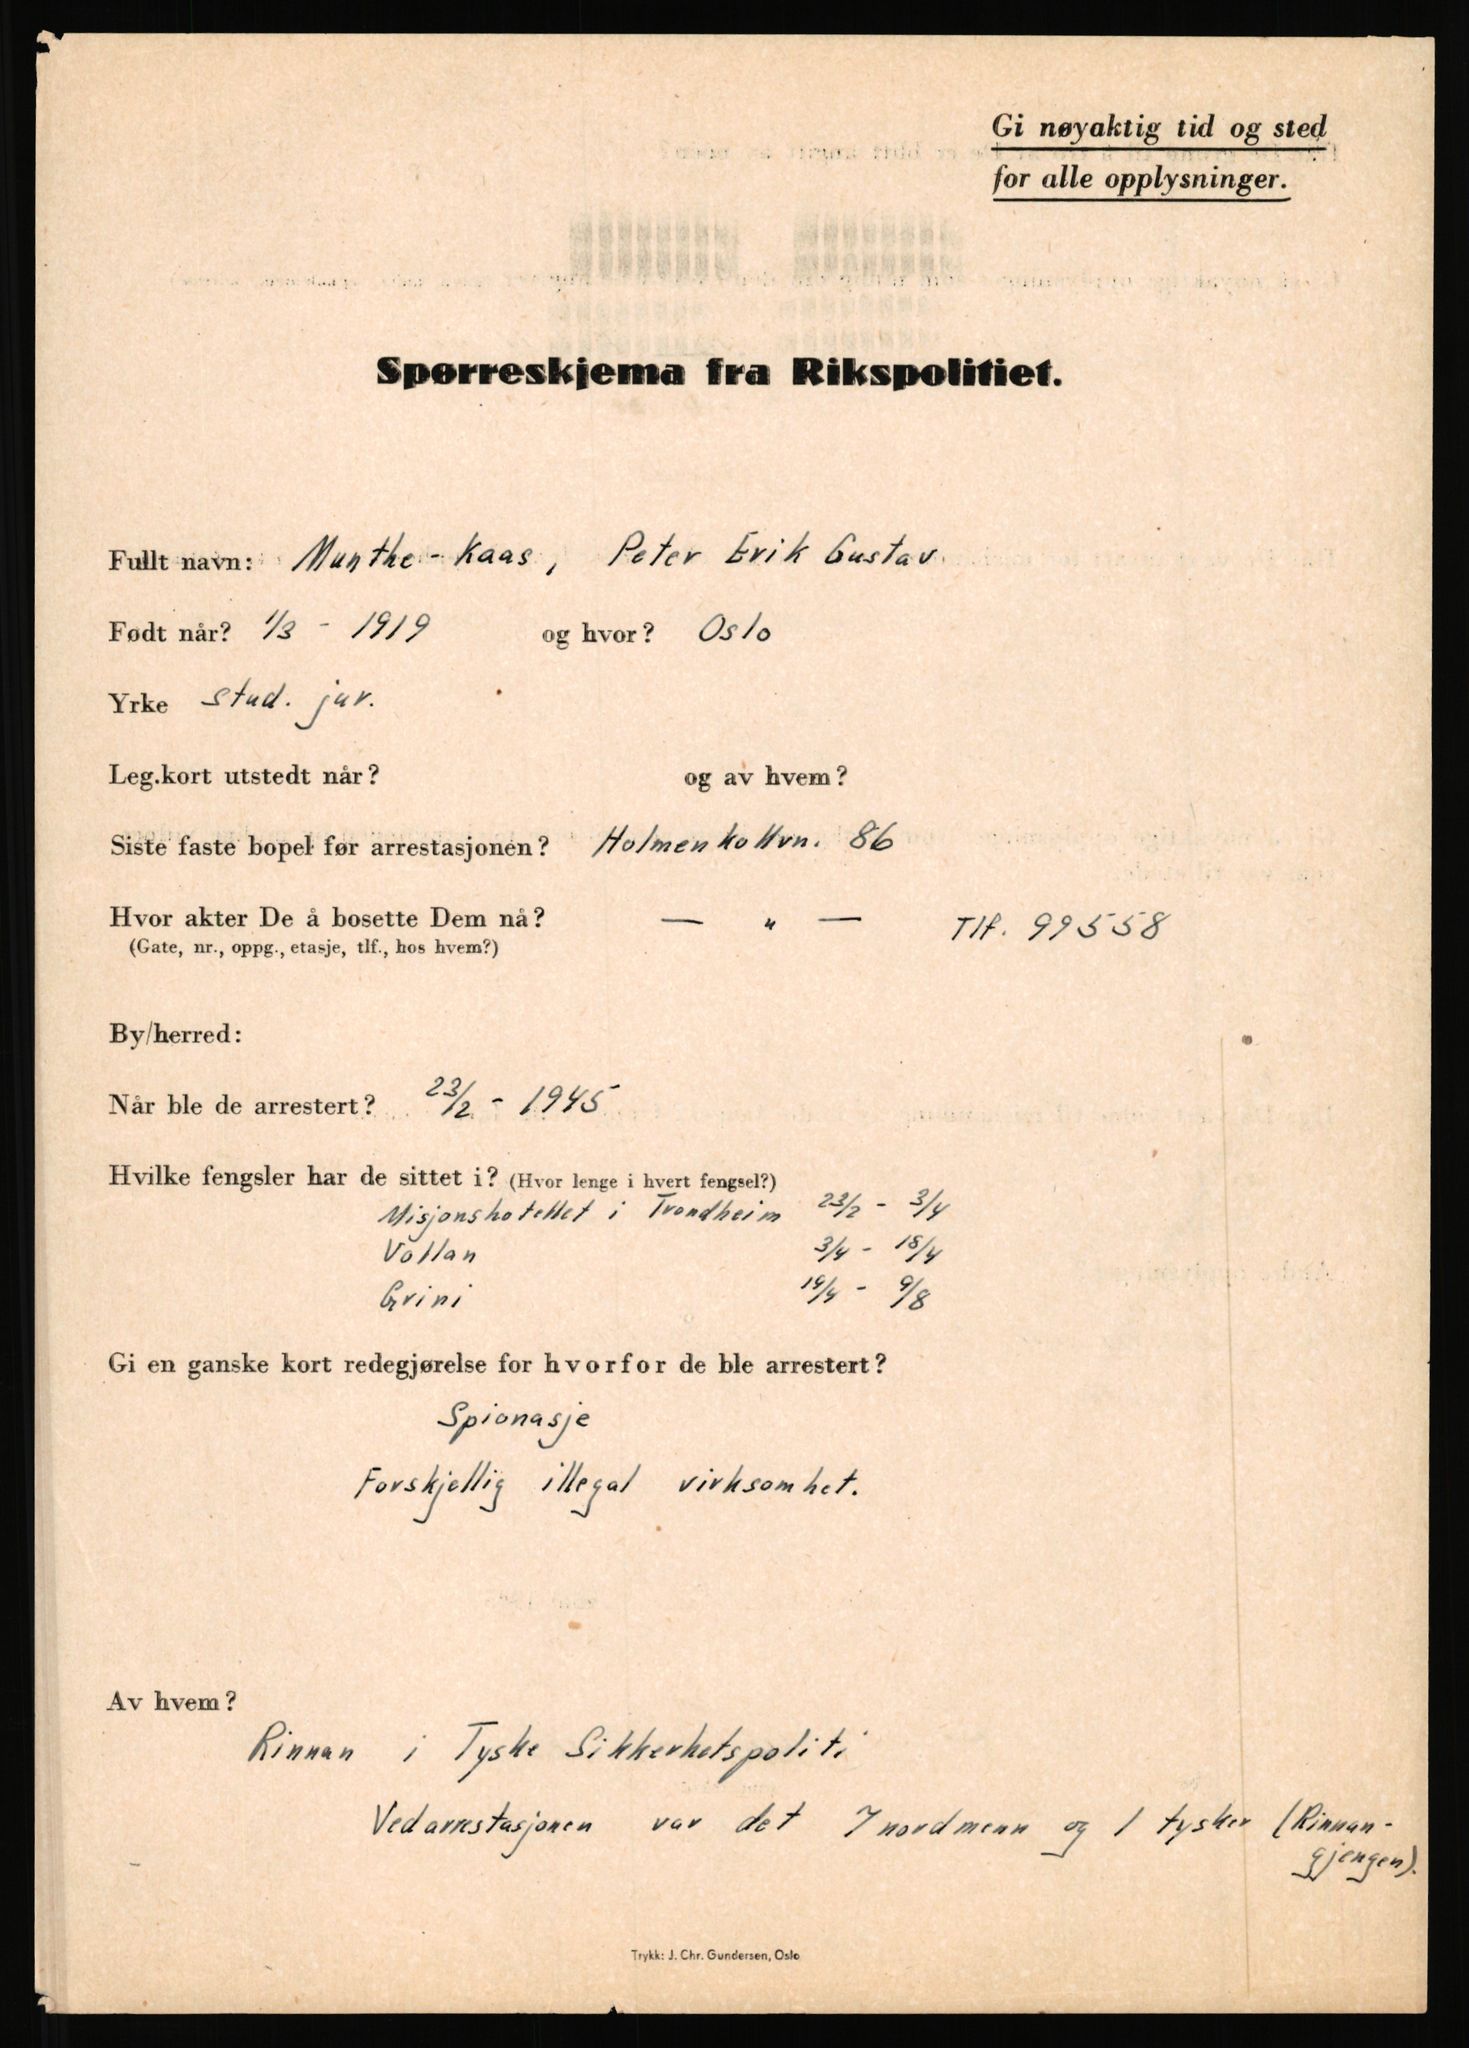 Gi nøyaktig tid og sted
for alle opplysninger.
Spørreskjema fra Rikspolitiet.
Fullt navn: Munthe-Kaas, Peter Erik Gustav
Født når? 1/3 - 1919 og hvor? Oslo
Yrke stud. jur.
Leg.kort utstedt når? og av hvem?
Siste faste bopel før arrestasjonen? Holmenkollvn. 86
Hvor akter De å bosette Dem nå? — " — Tlf. 99558
(Gate, nr., oppg., etasje, tlf., hos hvem?)
By/herred:
Når ble de arrestert? 23/2 - 1945
Hvilke fengsler har de sittet i? (Hvor lenge i hvert fengsel?)
Misjonshotellet i Trondheim 23/2 - 3/4
Vollan 3/4 - 18/4
Grini 19/4 - 9/8
Gi en ganske kort redegjørelse for hvorfor de ble arrestert?
Spionasje
Forskjellig illegal virksomhet.
Av hvem?
Rinnan i Tyske Sikkerhetspoliti
Ved arrestasjonen var det 7 nordmenn og 1 tysker (Rinnan-
gjengen).
Trykk: J. Chr. Gundersen, Oslo